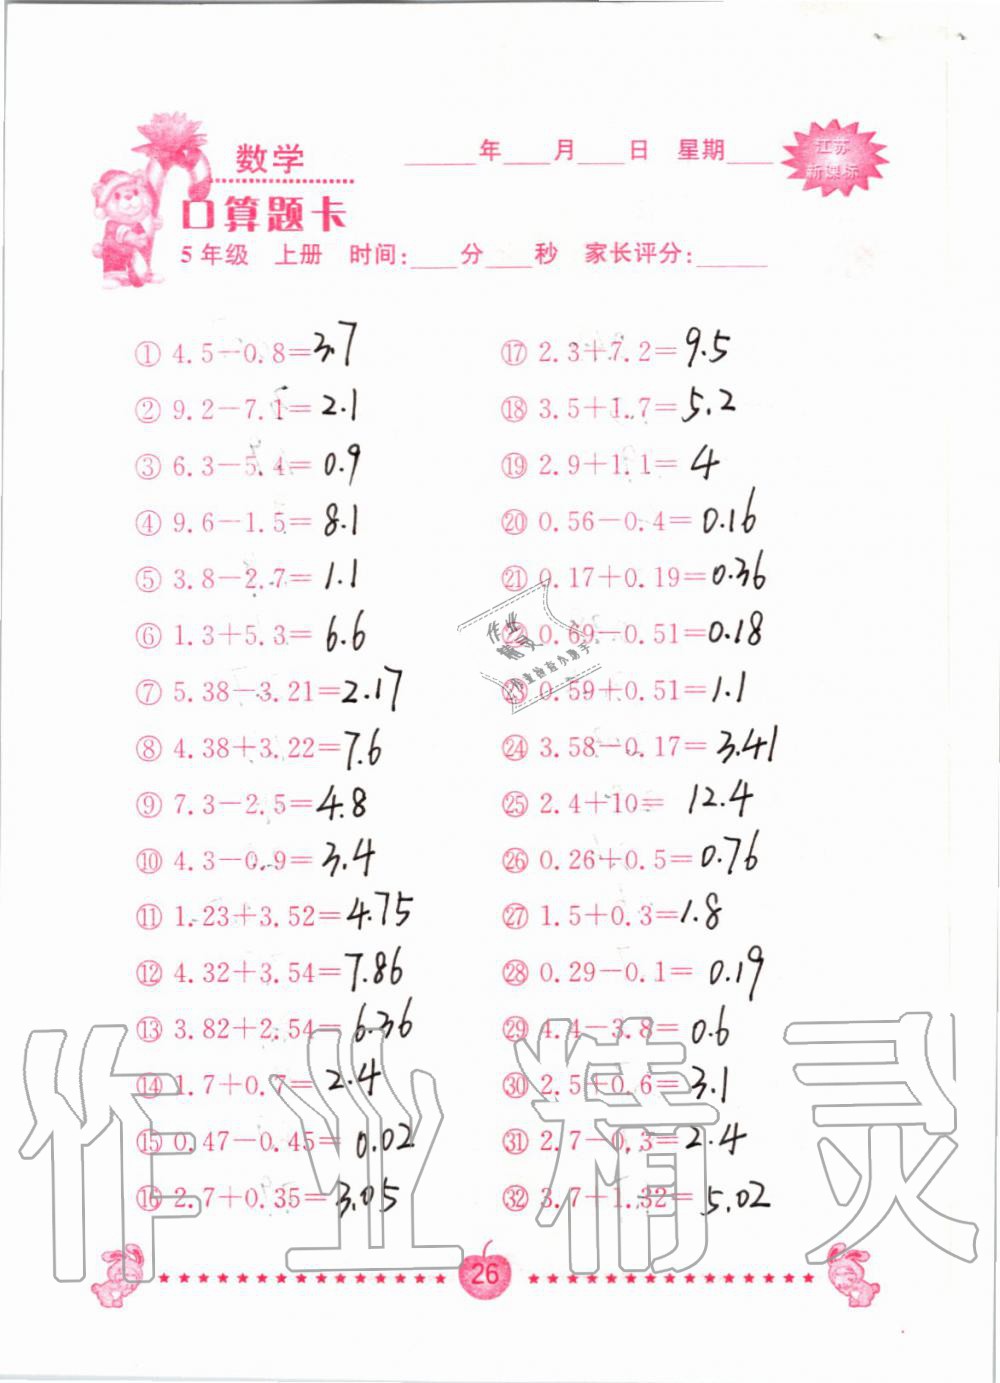 数学
____年____月____日 星期____
江苏
新课标
口算题卡
5年级 上册 时间:____分____秒 家长评分:____
① 4.5－0.8=3.7
② 9.2－7.1=2.1
③ 6.3－5.4=0.9
④ 9.6－1.5=8.1
⑤ 3.8－2.7=1.1
⑥ 1.3+5.3=6.6
⑦ 5.38－3.21=2.17
⑧ 4.38+3.22=7.6
⑨ 7.3－2.5=4.8
⑩ 4.3－0.9=3.4
⑪ 1.23+3.52=4.75
⑫ 4.32+3.54=7.86
⑬ 3.82+2.54=6.36
⑭ 1.7+0.7=2.4
⑮ 0.47－0.45=0.02
⑯ 2.7+0.35=3.05
⑰ 2.3+7.2=9.5
⑱ 3.5+1.7=5.2
⑲ 2.9+1.1=4
⑳ 0.56－0.4=0.16
㉑ 0.17+0.19=0.36
㉒ 0.69－0.51=0.18
㉓ 0.59+0.51=1.1
㉔ 3.58－0.17=3.41
㉕ 2.4+10=12.4
㉖ 0.26+0.5=0.76
㉗ 1.5+0.3=1.8
㉘ 0.29－0.1=0.19
㉙ 4.4－3.8=0.6
㉚ 2.5+0.6=3.1
㉛ 2.7－0.3=2.4
㉜ 3.7+1.32=5.02
作业
精灵
作业检查小助手
作业精灵
26